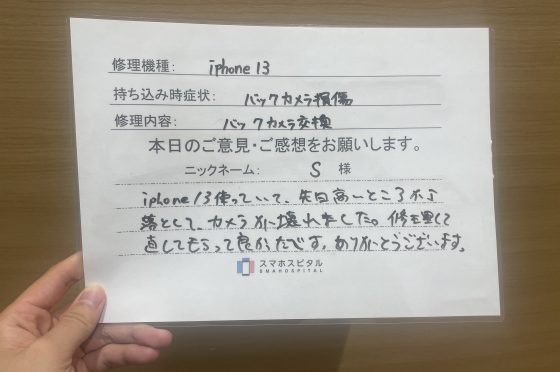 修理機種: iphone 13
持ち込み時症状: バックカメラ損傷
修理内容: バックカメラ交換
本日のご意見・ご感想をお願いします。
ニックネーム: S 様
iphone 13使っていて、先日高いところから
落として、カメラが壊れました。修理して
直してもらって良かったです。ありがとうございます。
スマホスピタル
SMAHOSPITAL